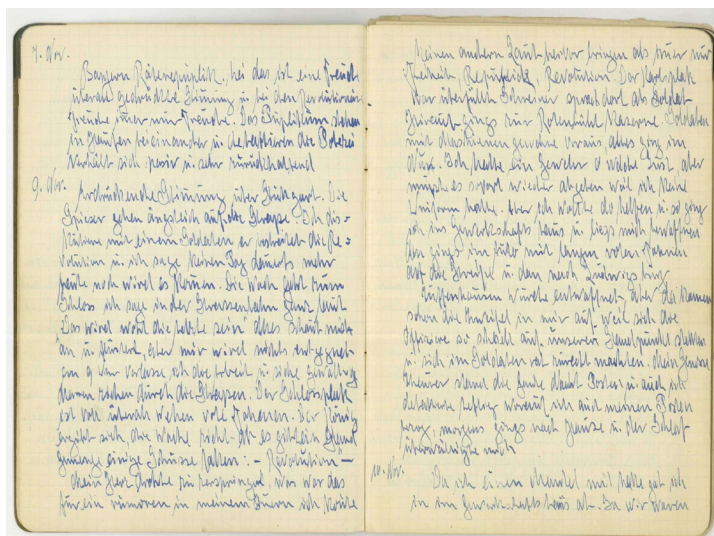 7. Nov.
Bayern Räterepublik, hei das ist eine Freude
überall gedrückte Stimmung u. bei den Revolutionären
Freude immer nur Freude. Das Publikum stehen
in Haufen beieinander u. debattieren die Polizei
verhält sich passiv u. sehr zurückhaltend
9. Nov.
Erdrückende Stimmung über Stuttgart. Die
Spieser gehen ängstlich auf die Strasse. Ich dis-
kutiere mit einem Soldaten er bestreitet die Re-
volution u. ich sage keinen Tag dauerts mehr
heute noch wird es kommen. Die Wach geht zum
Schloss ich sage in der Strassenbahn ganz laut
Das wird wohl die letzte sein alles schaut mich
an u. flüstert, aber mir wird nichts entgegnet
um 9 Uhr verlasse ich die Arbeit u. siehe gewaltige
durch die Strassen. Der Schlossplatz
ist voll überall wehen rote Fahnen. Der König
ergibt sich, die Wache nicht. es gibt ein
einige Schüsse fallen: – Revolution –
Mein Herz drohte zu zerspringen, was war das
für ein rumoren in meinem Innern ich konnte
keinen andern Laut hervor bringen als immer nur
Freiheit, Republik, Revolution. Der Karlsplatz
war überfüllt Schreiner sprach dort als Soldat
Hierauf gings zur Rotenbühl Kaserne. Soldaten
mit Maschinengewehre voraus, alles ging im
Ich hatte ein Gewehr o welche Lust, aber
musste es sofort wieder abgeben weil ich keine
Uniform hatte. Aber ich wollte da helfen u. so ging
ich ins Gewerkschaftshaus u. liess mich bewaffnen
dan gings im Auto mit langen roten Fahnen
auf die Streife u. dan nach Ludwigsburg
Zuffenhausen wurde entwaffnet, aber da kamen
schon die Zweifel in mir auf weil sich die
Offiziere so schnell auf unseren Standpunkt stellten
u. sich im Soldaten rat zurecht machten. Mein
stand die ganze Nacht Posten u. auch ich
worauf ich auf meinen Posten
morgens gings nach Hause u. der Schlaf
überwältigte mich.
10. Nov.
Da ich einen Mantel mit hatte gab ich
in im Gewerkschaftshaus ab. Da wir waren